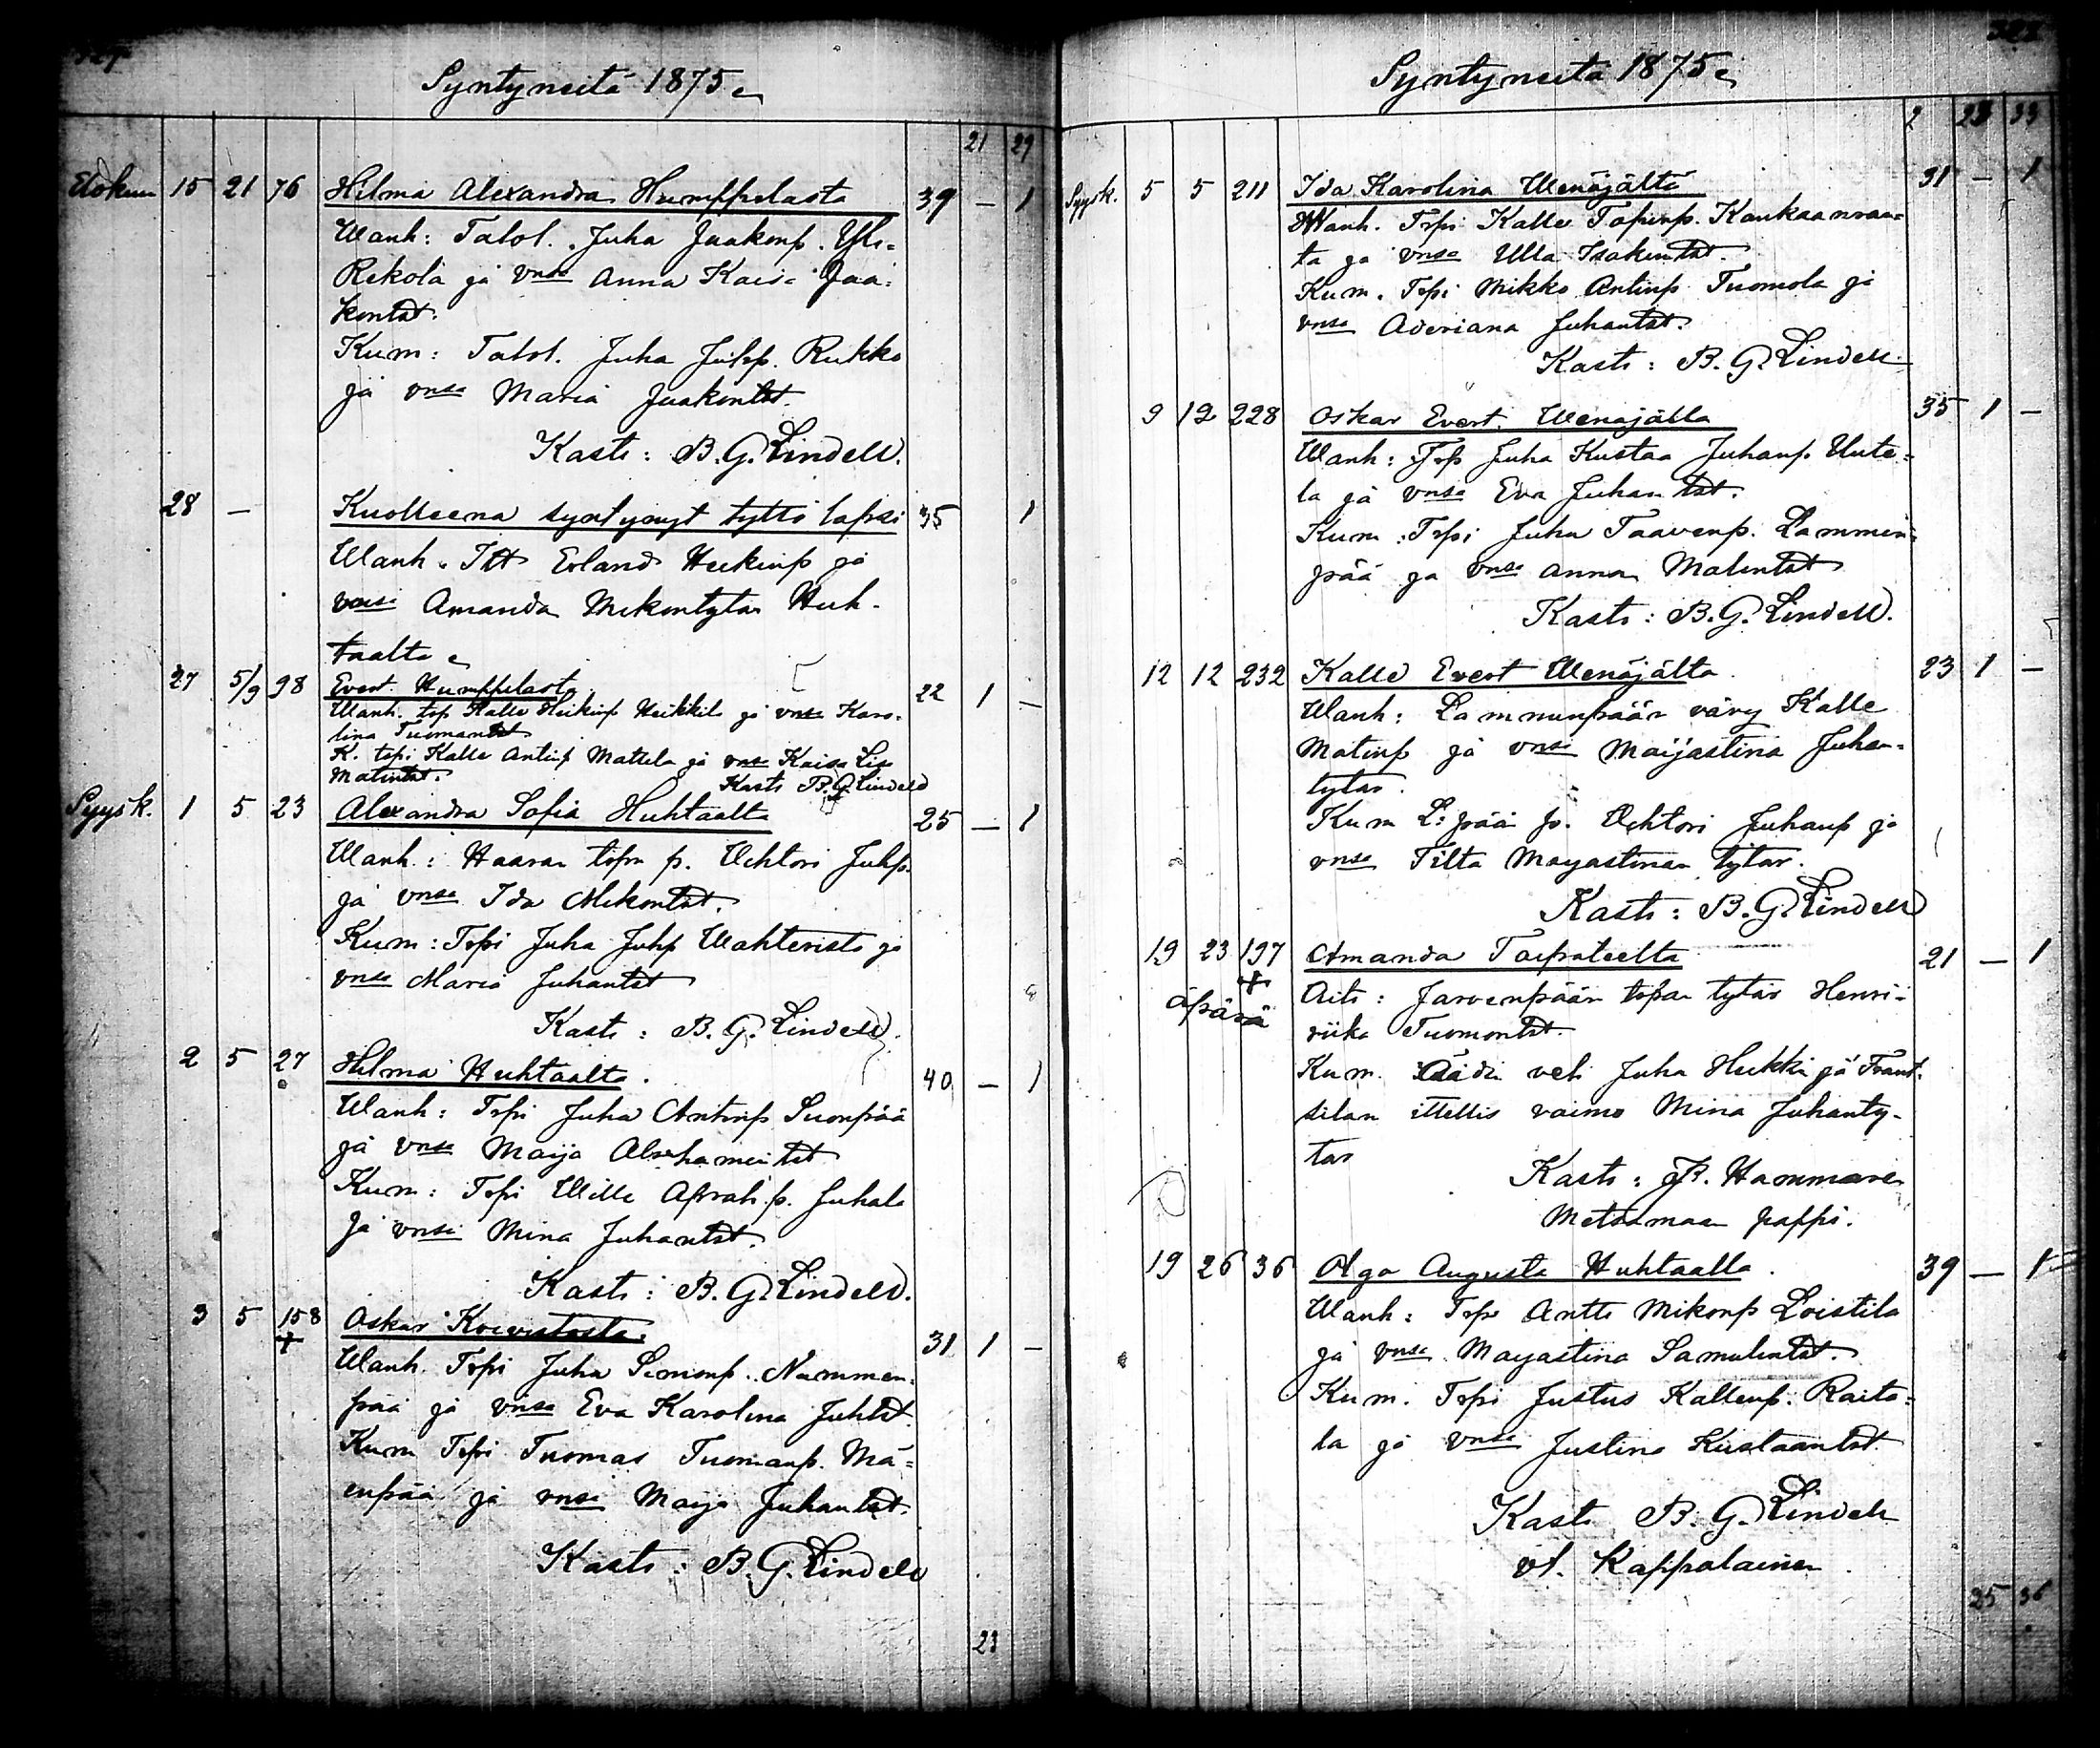 Syntyneitä 1875
21 29
Elokuu 15 21 76 Hilma Alexandra Humppilasta 39 — 1
Wanh: Talol. Juha Jaakonp. Yli-
Rekola ja vnsa Anna Kaisa Jaa-
kontat.
Kum: Talol. Juha Juhp. Rukko
ja vnsa Maria Jaakontat.
Kasti: B. G. Lindell.
28 — Kuolleena syntynyt tyttö lapsi 35 1
Wanh. Itt Erland Heikinp ja
vnsa Amanda Mikontytar Huh-
taalta
27 5/9 98 Evert Humppilasta 22 1 —
Wanh. tsp Kalle Heikinp Heikkilä ja vnsa Karo-
lina Tuomantat
K. tspi Kalle Antinp Mattila ja vnsa Kaisa Lisa
Matintat. Kasti B. G. Lindell
Syysk. 1 5 23 Alexandra Sofia Huhtaalta 25 — 1
Wanh: Haaran tspn p. Wihtori Juhp.
ja vnsa Ida Mikontat.
Kum: Tspi Juha Juhp Wahteristo ja
vnsa Maria Juhantat
Kasti: B. G. Lindell.
2 5 27 Hilma Huhtaalta. 40 — 1
Wanh: Tspi Juha Antinp Suonpää
ja vnsa Maija Abrahamintat
Kum: Tspi Wille Aprah.p. Juhala
ja vnsa Mina Juhantat.
Kasti: B. G. Lindell.
3 5 158 Oskar Koivistosta. 31 1 —
+
Wanh. Tspi Juha Simonp. Nummen-
pää ja vnsa Eva Karolina Juhtat.
Kum Tspi Tuomas Tuomanp. Mä-
enpää ja vnsa Maija Juhantat.
Kasti: B. G. Lindell
23
Syntyneitä 1875
2 23 33
Syysk. 5 5 211 Ida Karolina Wenäjältä 31 — 1
Wanh. Tspi Kalle Tapinp. Kankaanran-
ta ja vnsa Ulla Isakintat.
Kum. Tspi Mikko Antinp Tuomola ja
vnsa Aderiana Juhantat.
Kasti: B. G. Lindell
9 12 228 Oskar Evert Wenäjältä 35 1 —
Wanh: Tsp Juha Kustaa Juhanp. Uute-
la ja vnsa Eva Juhantat.
Kum. Tspi Juha Taavenp. Lammin-
pää ja vnsa Anna Matintat
Kasti: B. G. Lindell.
12 12 232 Kalle Evert Wenäjältä 23 1 —
Wanh: Lamminpään vävy Kalle
Matinp ja vnsa Maijastina Juhan-
tytar.
Kum L:pää p. Wihtori Juhanp ja
vnsa Tilta Mayastinan tytar.
Kasti: B. G. Lindell
19 23 197 Amanda Taipaleelta 21 — 1
+
äpärä
Aiti: Jarvenpään tspan tytar Henri-
riika Tuomontat.
Kum. Äidin veli Juha Heikki ja Frant-
silan ittellis vaimo Mina Juhanty-
tar
Kasti: Hammare
Metsämaan pappi.
19 26 36 Olga Augusta Huhtaalta. 39 — 1
Wanh: Tsps Antti Mikonp Loistila
ja vnsa Mayastina Samulintat.
Kum. Tspi Justus Kallenp. Raita-
la ja vnsa Justina Kustaantat.
Kasti B. G. Lindell
vt. Kappalainen
25 36